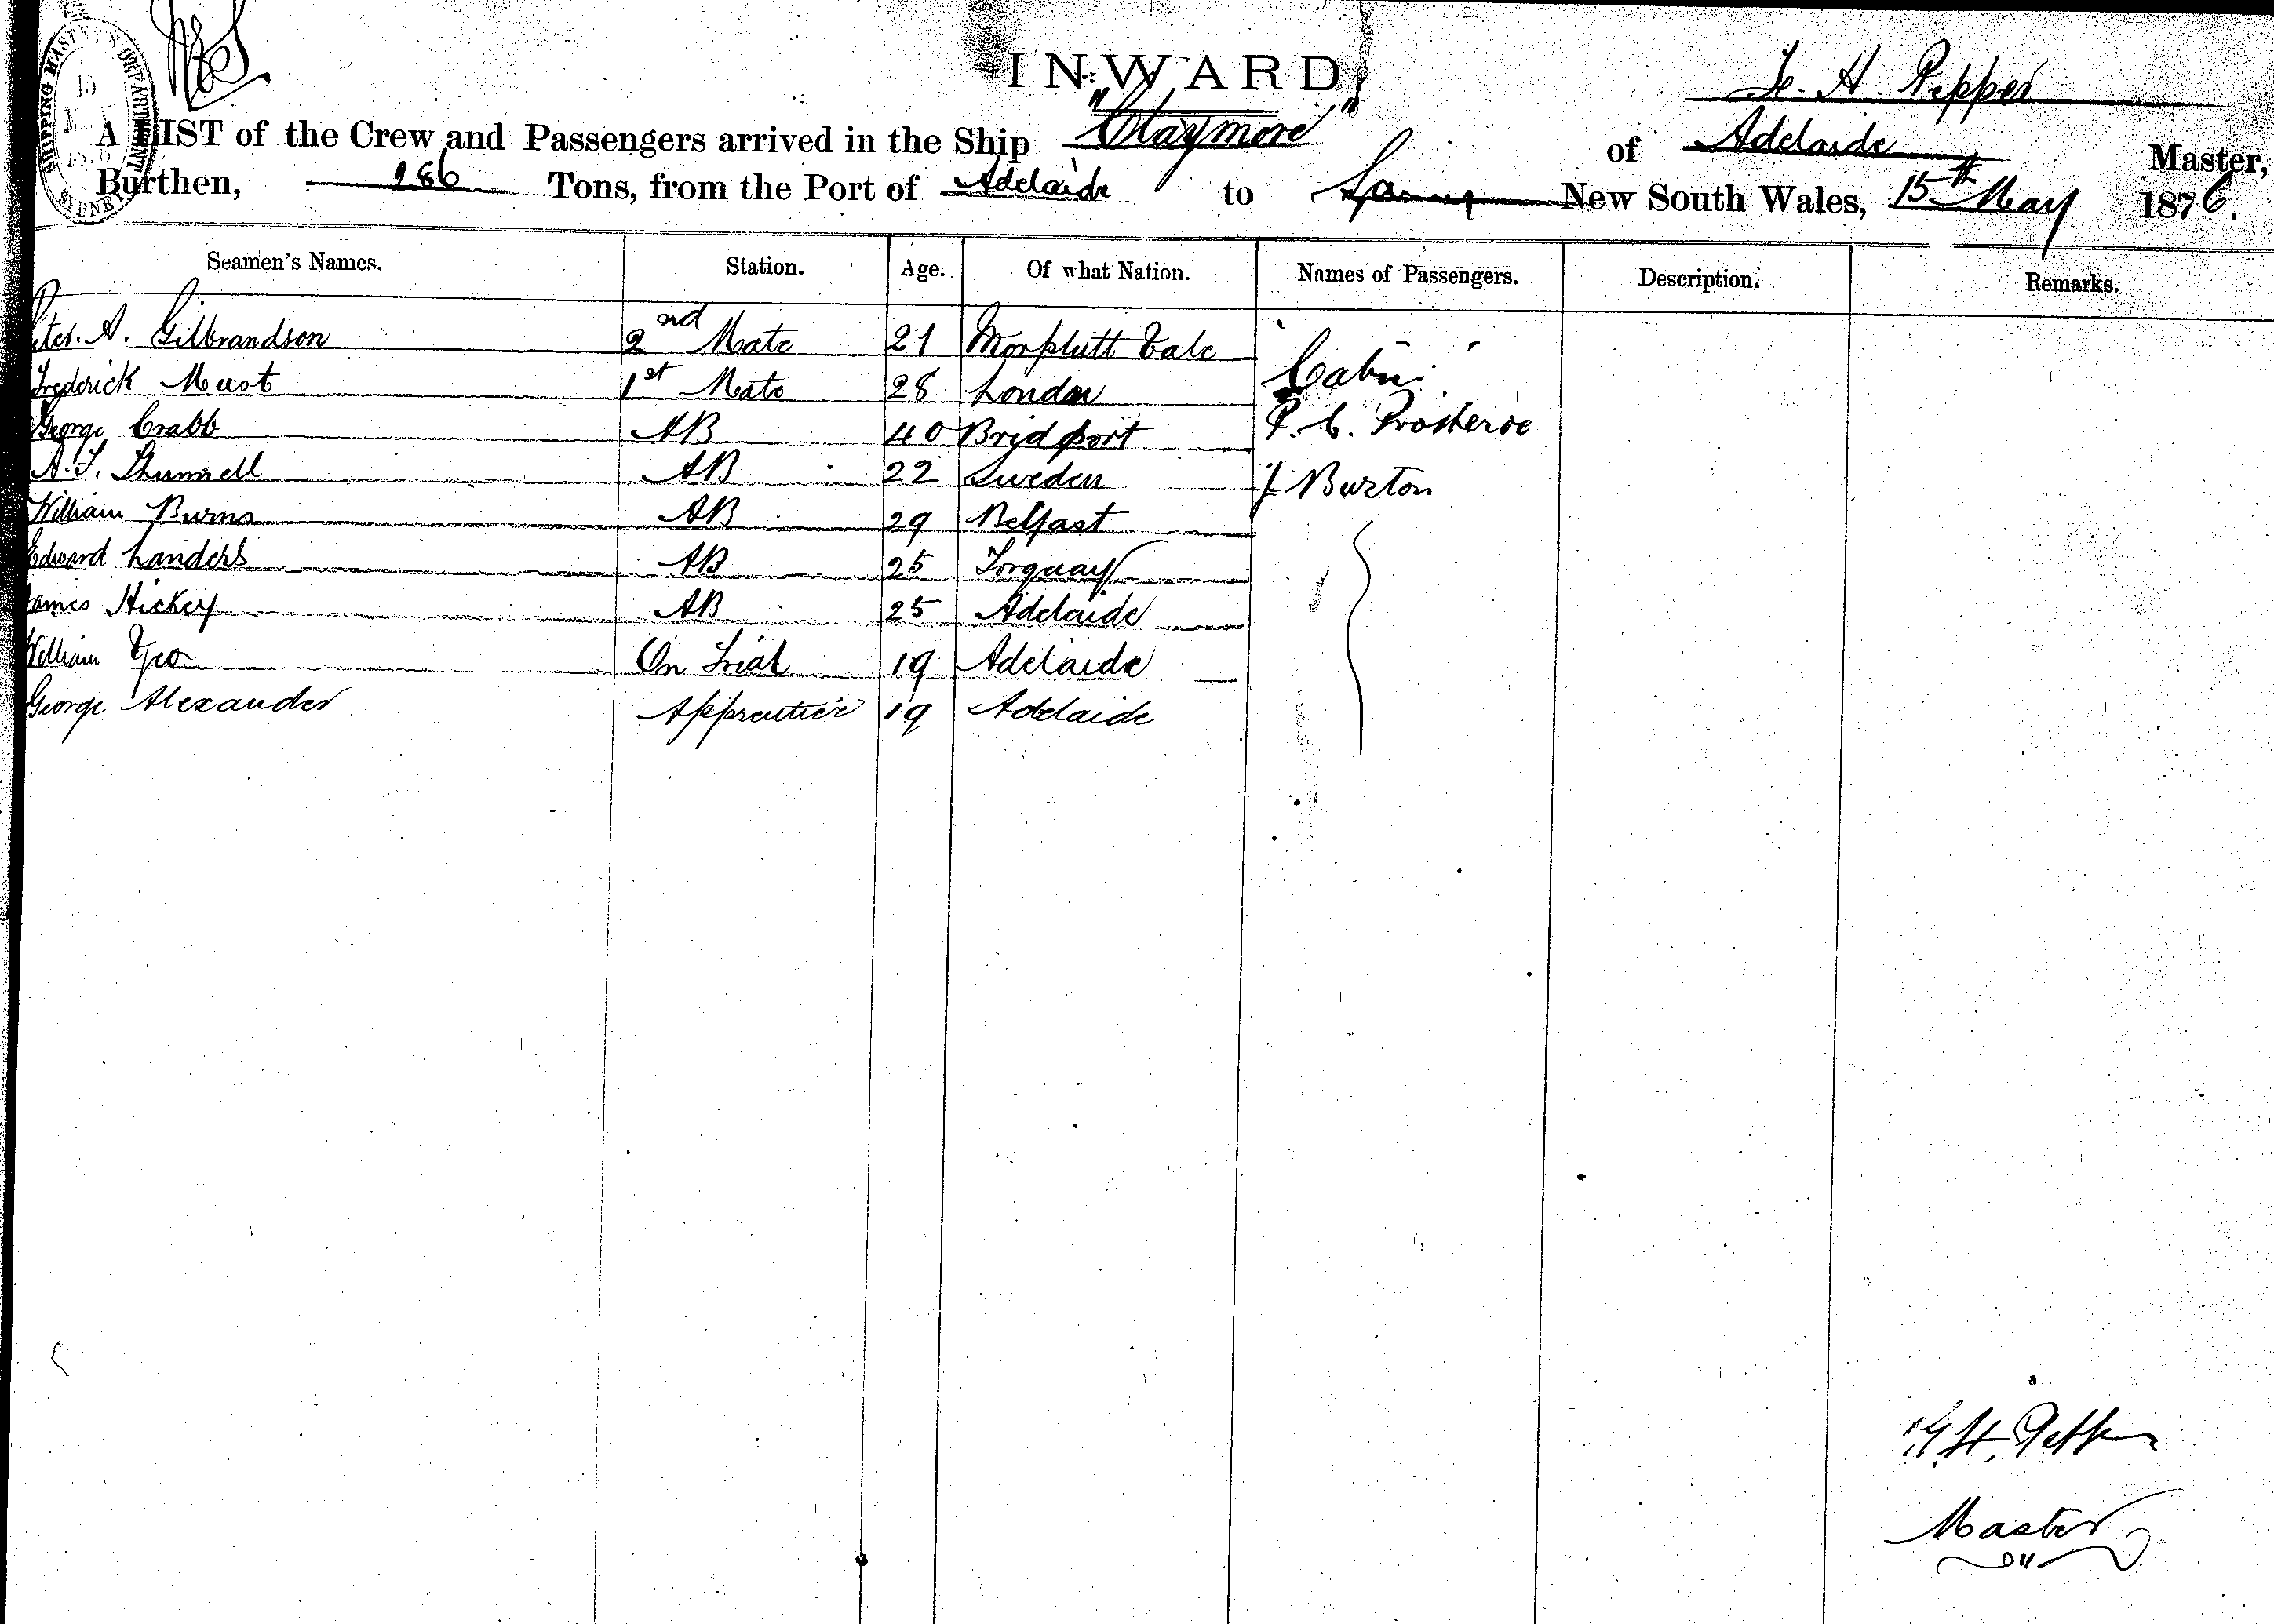 SHIPPING MASTER'S DEPARTMENT
15
SYDNEY
INWARD.
H. Pepper
A LIST of the Crew and Passengers arrived in the Ship "Claymore" of Adelaide Master,
Burthen, 286 Tons, from the Port of Adelaide to New South Wales, 15th May 1876.
Seamen's Names. Station. Age. Of what Nation. Names of Passengers. Description. Remarks.
Peter. A. Gilbrandson 2nd Mate 21
Frederick Must 1st Mate 28 London Cabin
George Crabb AB 40 Bridport P. C.
A. F. Thunnell AB 22 Sweden J Burton
William Burns AB 29 Belfast
Edward Landers AB 25 Torquay
James Hickey AB 25 Adelaide
William Geo On Trial 19 Adelaide
George Alexander Apprentice 19 Adelaide
H. Pepper
Master